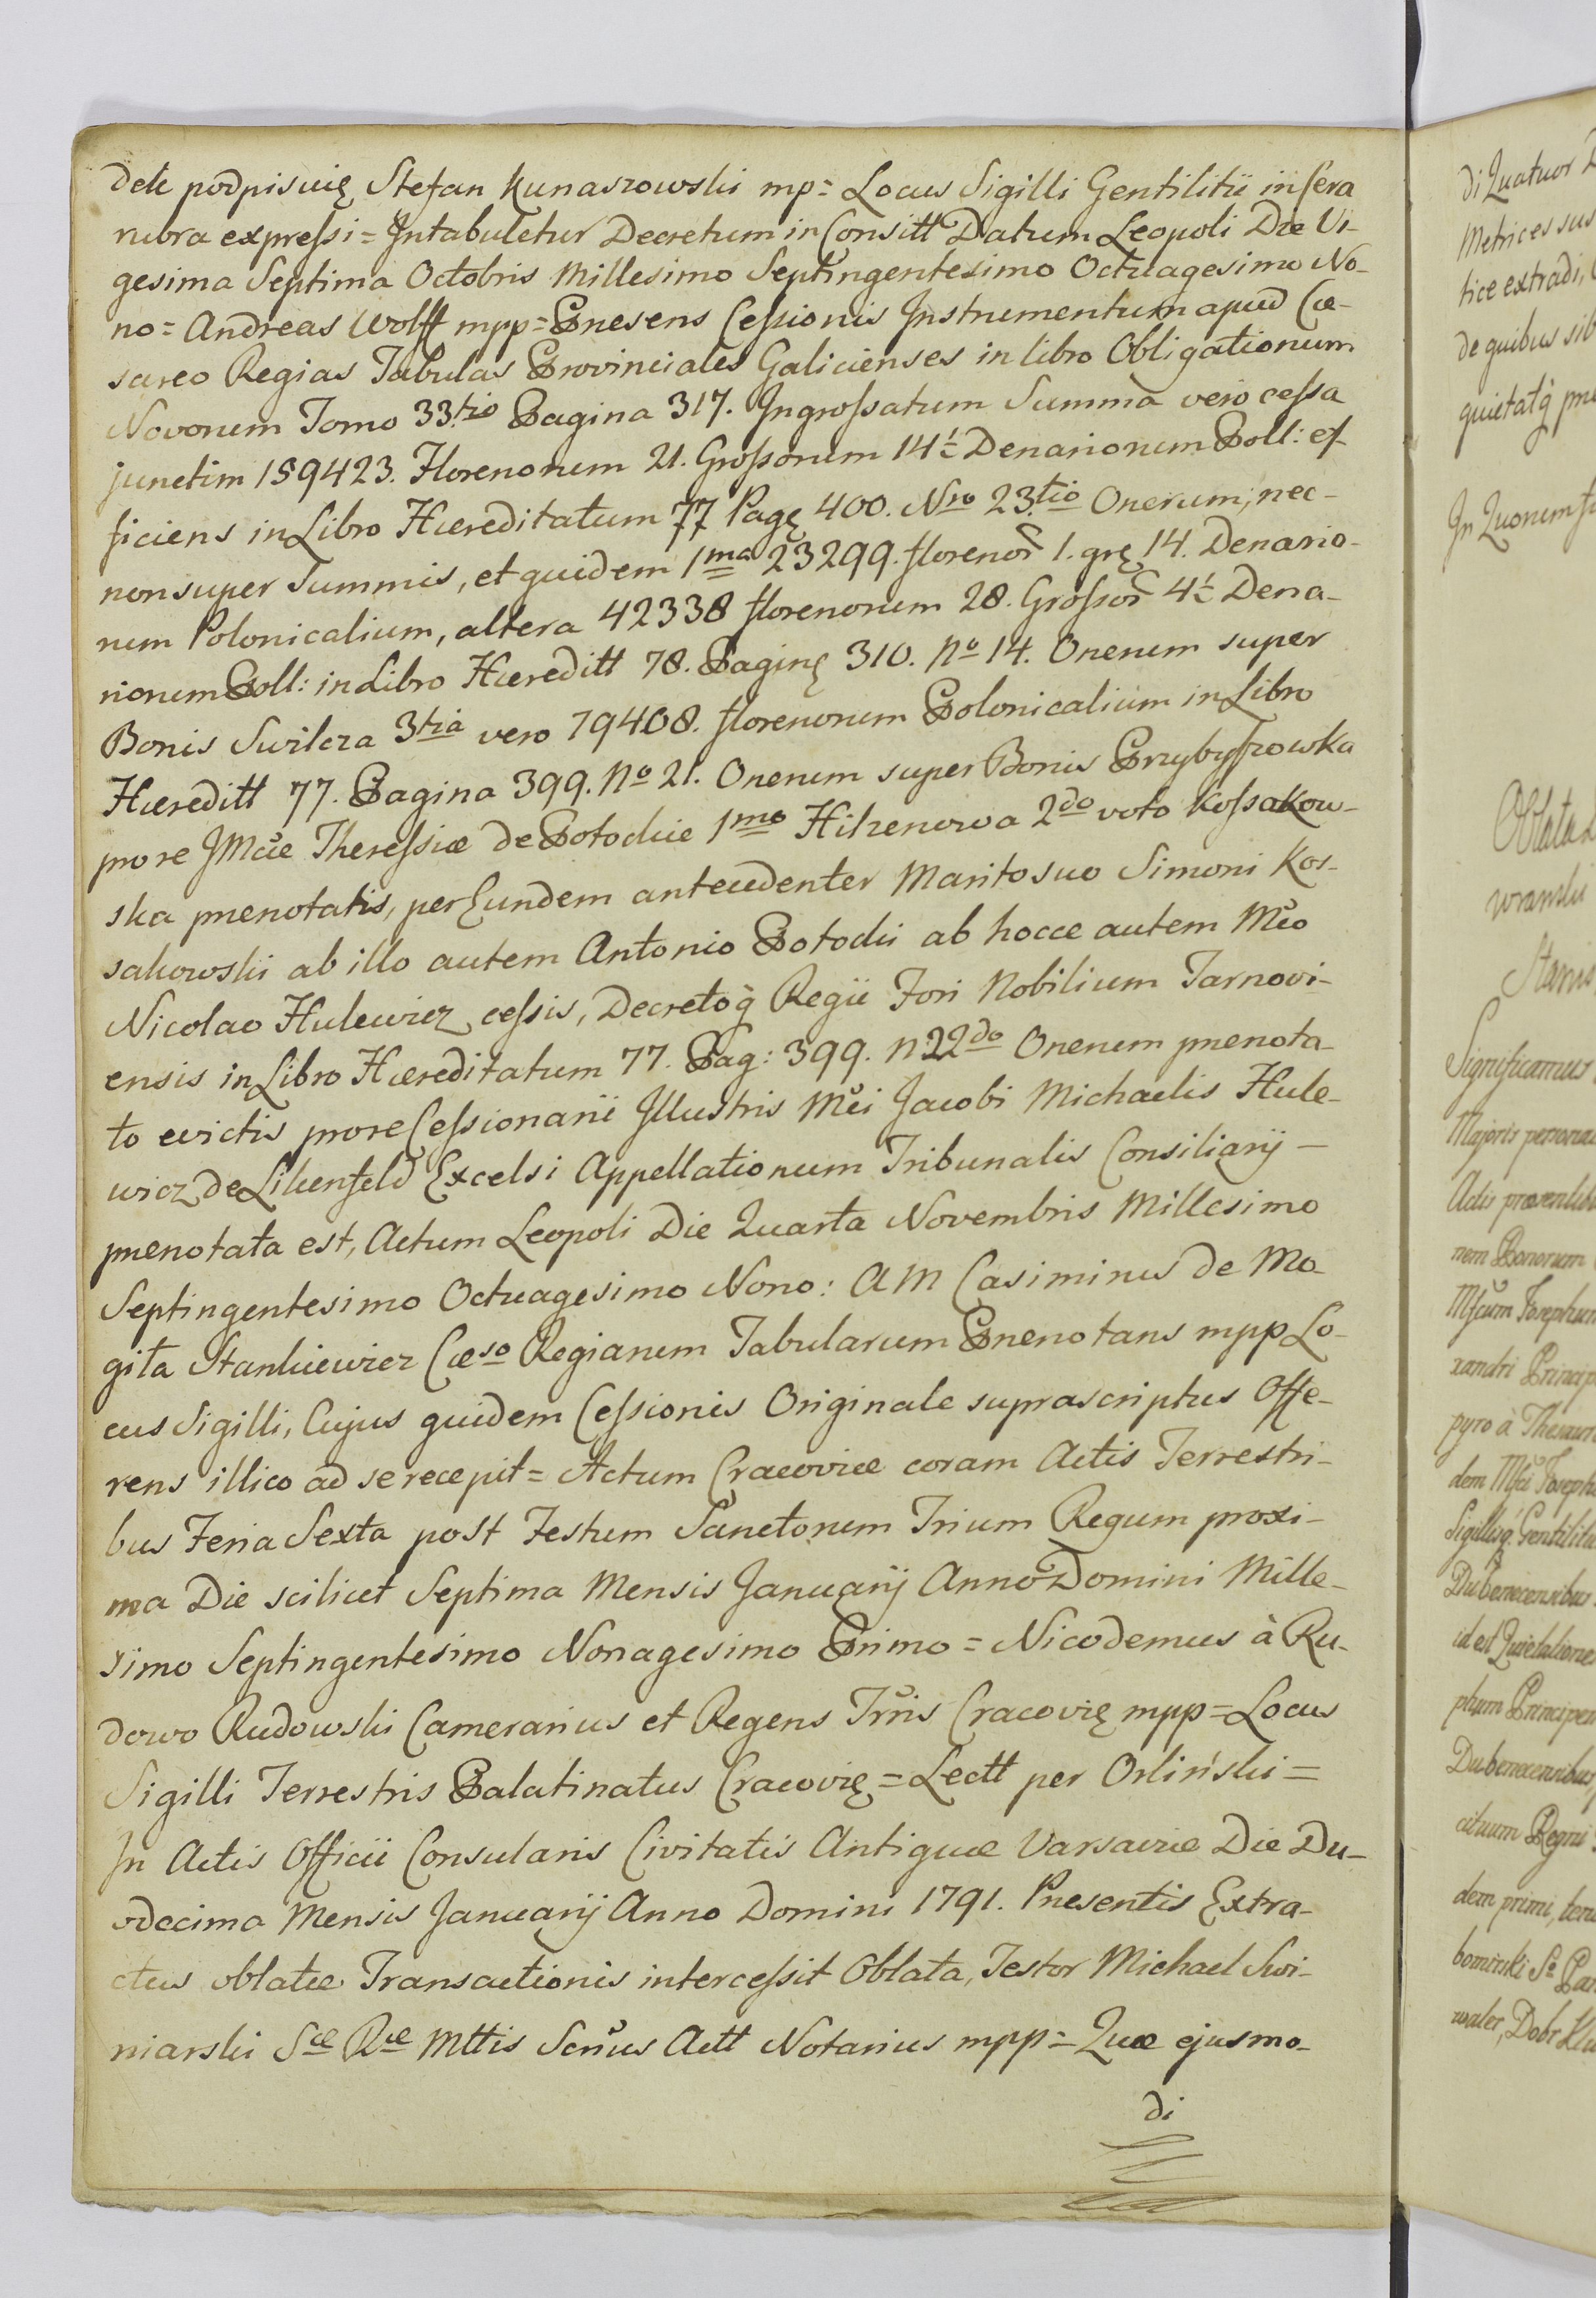 dek podpisuię Stefan Kunaszowski mp = Locus Sigilli Gentilitii in Cera
rubra expressi = Intabuletur Decretum in Consitt Datum Leopoli Die Vi-
gesima Septima Octobris Millesimo Septingentesimo Octuagesimo No-
no = Andreas Wolff mpp = Presens Cessionis Instrumentum apud Cæ-
sareo Regias Tabulas Provinciales Galicienses in libro Obligationum
Novorum Tomo 33.tio Pagina 317. Ingrossatum Summa vero cessa
junctim 159423. Florenorum 21. Grossorum 14½ Denariorum Poll: ef-
ficiens in Libro Hæreditatum 77 Pagę 400. Nro 23.tio Onerum, nec-
non super Summis, et quidem 1ma 23299. florenor̃ 1. grę 14. Denario-
rum Polonicalium, altera 42338 florenorum 28. Grossor̃ 4½ Dena-
riorum Poll: in Libro Hæreditt 78. Paginę 310. No 14. Onerum super
Bonis Swilcza 3tia vero 79408. florenorum Polonicalium in Libro
Hæreditt 77. Pagina 399. No 21. Onerum super Bonis Przybyszowka
pro re JMcæ Theressiæ de Potockie 1mo Hilzenowa 2do voto Kossakow-
ska prenotatis, per Eundem antecedenter Marito suo Simoni Kos-
sakowski ab illo autem Antonio Potocki ab hocce autem Mc̃o
Nicolao Hulewicz cessis, Decretoq̃ Regii Fori Nobilium Tarnovi-
ensis in Libro Hæreditatum 77. Pag: 399. n 22do Onerum prenota-
to evictis pro re Cessionarii Illustris Mc̃i Jacobi Michaelis Hule-
wicz de Lilienfeld Excelsi Appellationum Tribunalis Consiliarij –
prenotata est, Actum Leopoli Die Quarta Novembris Millesimo
Septingentesimo Octuagesimo Nono: AM Casimirus de Mo-
gita Stankiewicz Cæso Regiarum Tabularum Prenotans mpp Lo-
cus Sigilli, Cujus quidem Cessionis Originale suprascriptus Offe-
rens illico ad se recepit = Actum Cracoviæ coram Actis Terrestri-
bus Feria Sexta post Festum Sanctorum Trium Regum proxi-
ma Die scilicet Septima Mensis Januarij Anno Domini Mille-
simo Septingentesimo Nonagesimo Primo = Nicodemus à Ru-
dowo Rudowski Camerarius et Regens Trr̃is Cracovię mpp = Locus
Sigilli Terrestris Palatinatus Cracovię = Lectt per Orliński =
In Actis Officii Consularis Civitatis Antiquæ Varsaviæ Die Du-
odecima Mensis Januarij Anno Domini 1791. Presentis Extra-
ctus oblatæ Transactionis intercessit Oblata, Testor Michael Swi-
niarski Sæ Ræ Mttis Scr̃us Actt Notarius mpp = Quæ ejusmo-
di
di Quatuor
Metrices sus
tice extradi,
de quibus sib
quietatq̃
In Quorum
Oblata
wranski
Stanis
Significamus
Majoris persona
Actis præsentib
nem Bonorum
Mf̃cum Josephum
xandri Princip
pyro à Thesauro
dem Mf̃ci Joseph
Sigillisq̃ Gentiliti
Dubenecensibus
id est Quietatione
phum Principem
Dubenecensibus,
cituum Regni
dem primi,
bomirski
walec, Dobr